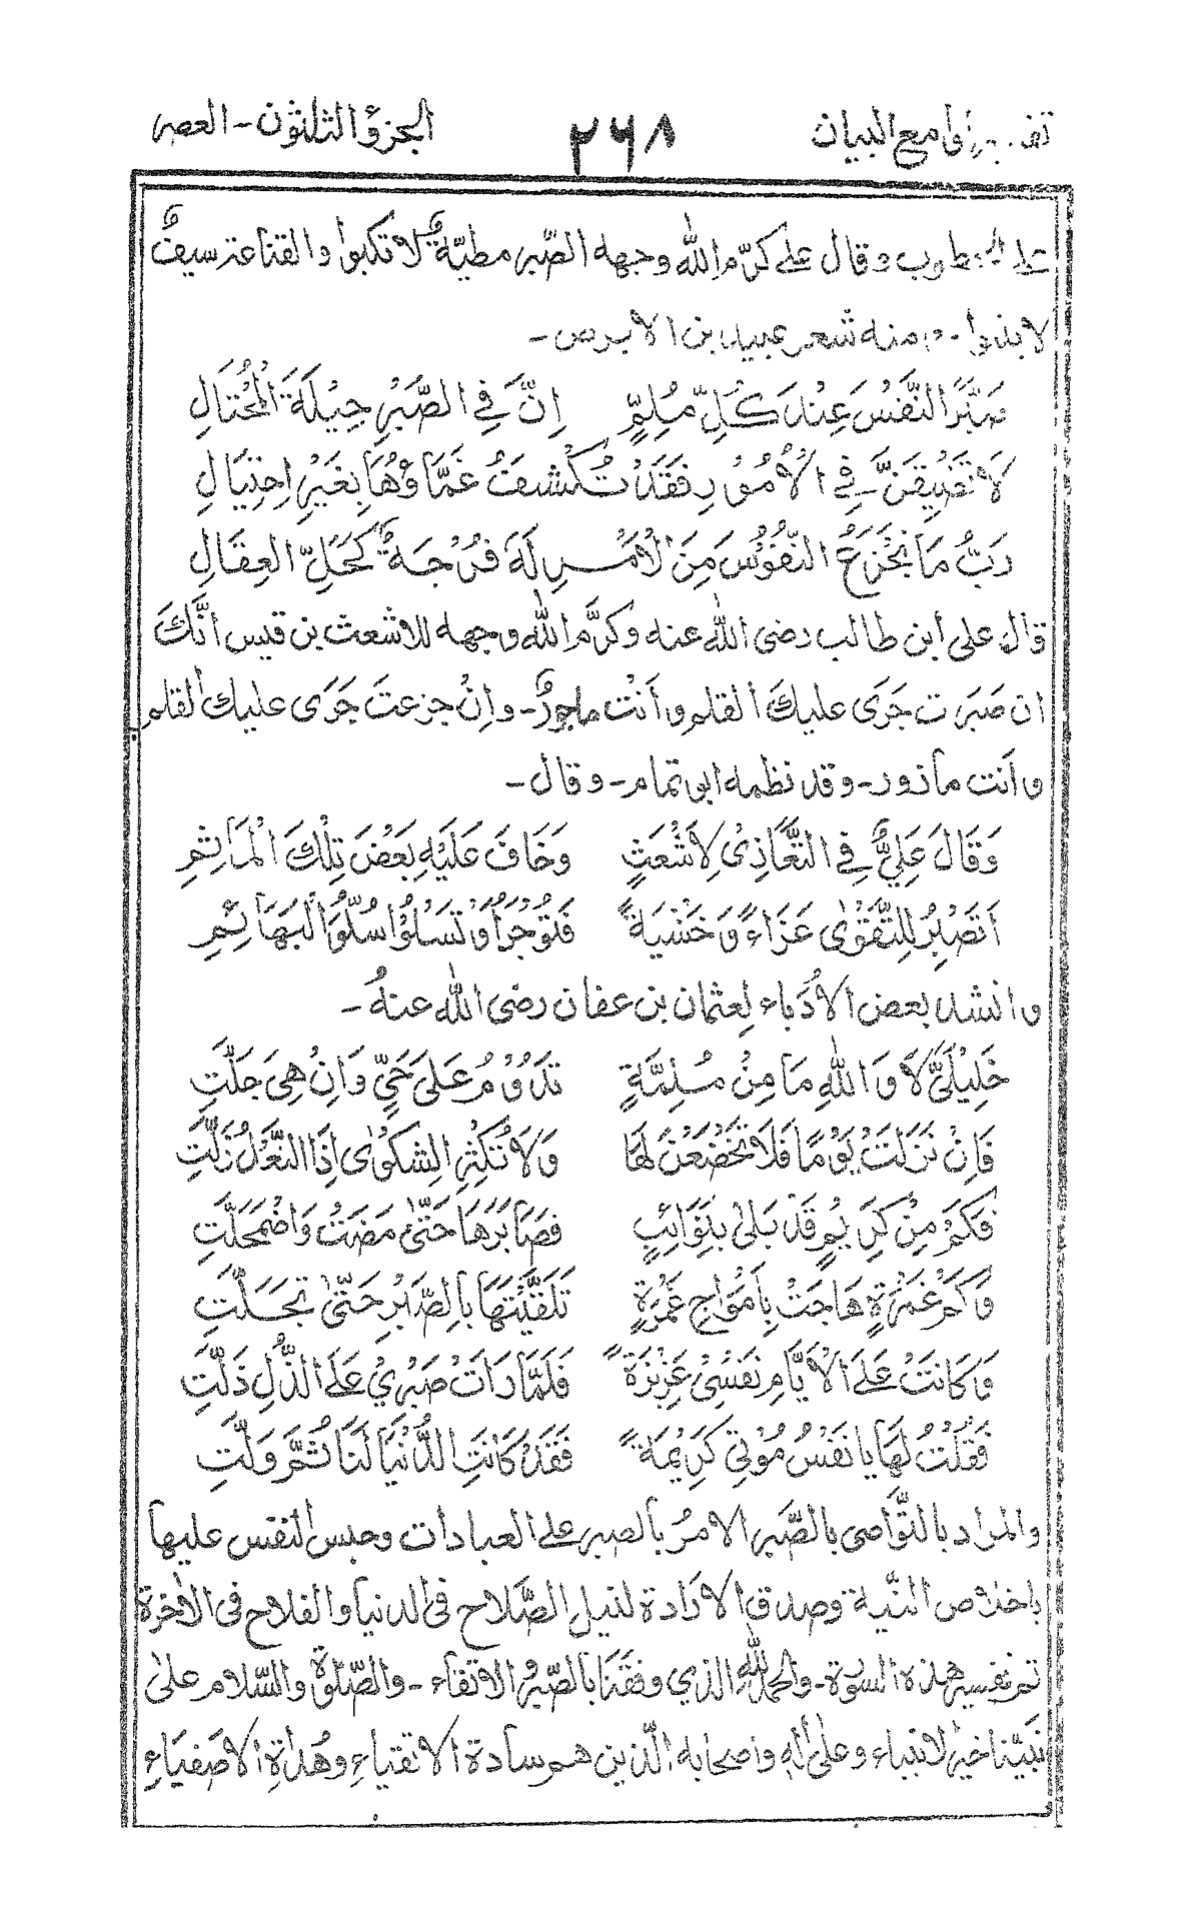 تفسير جوامع البيان ٢٦٨ الجزء الثلثون - العصر
على المطلوب وقال على كرّم الله وجهه الصّبر مطيّةٌ لا تكبوا والقناعة سيفٌ
لا ينبوا - ومنه شعر عبيد بن الابرص -
صَبِّرِ النَّفْسَ عِنْدَ كُلِّ مُلِمٍّ اِنَّ فِي الصَّبْرِ حِيْلَةَ الْمُحْتَالِ
لَا تَضِيْقَنَّ فِي الْاُمُوْرِ فَقَدْ تُكْشَفُ غَمَّاؤُهَا بِغَيْرِ احْتِيَالِ
رَبُّ مَا تَجْزَعُ النُّفُوْسُ مِنَ الْاَمْرِ لَهَ فُرْجَةٌ كَحَلِّ العِقَالِ
قال على ابن طالب رضى الله عنه وكرَّم الله وجهه للاشعث بن قيس انَّكَ
ان صَبَرت جَرَى عليكَ القلم وأنت ماجورٌ - واِنْ جزعتَ جَرَى عليك القلم
وأنت مأزور - وقد نظمه ابو تمام - وقال -
وَقَالَ عَلِيٌّ فِي التَّعَازِىْ لِاَشْعَثٍ وَخَافَ عَلَيْهِ بَعْضَ تِلْكَ الْمَاٰثِمِ
اَتَصْبِرُ لِلتَّقْوٰى عَزَاءً وَخَشْيَةً فَتُوْجَرُ اَوْ تَسْلُوْا سُلُوَّ الْبَهَائِمِ
وانشد بعض الاُدَباء لِعثمان بن عفان رضى الله عنهُ -
خَلِيْلَيَّ لَا وَاللهِ مَا مِنْ مُلِمَّةٍ تَدُوْمُ عَلىَ حَيٍّ وَاِنْ هِىَ جَلَّتِ
فَاِنْ نَزَلَتْ يَوْمًا فَلَا تَخْضَعَنْ لَهَا وَلَا تُكْثِرِ الشَّكْوٰى اِذَا النَّعْلُ زَلَّتِ
فَكَمْ مِنْ كَرِيْمٍ قَدْ بَلىٰ بِنَوَائِبٍ فَصَابَرَهَا حَتّىٰ مَضَتْ وَاضْمَحَلَّتِ
وَكَمْ غَمْرَةٍ هَاجَتْ بِأَمْوَاجِ غَمْرَةٍ تَلَقَّيْتَهَا بِالصَّبْرِ حَتّىٰ تَجَلَّتِ
وَكَانَتْ عَلىَ الْاَيَّامِ نَفْسِىْ عَزِيْزَةً فَلَمَّا رَاَتْ صَبْرِيْ عَلىَ الذُّلِ ذَلَّتِ
فَقُلْتُ لَهَا يَا نَفْسُ مُوْتِي كَرِيْمَةً فَقَدْ كَانَتِ الدُّنْيَا لَنَا ثُمَّ وَلَّتِ
والمراد بالتَّوَاصى بالصَّبر الامرُ بالصبر على العبادات وحبس النفس عليها
باخلاص النيَّة وصدق الارادة لنيل الصَّلاح فى الدنيا والفلاح فى الاٰخرة
تم تفسير هذه السورة - والحمد للهِ الذي وفقَنَا بالصّبْر والاتقاء - والصّلوٰة والسّلام علىٰ
نبيّنا خير الانبياء وعلىٰ اٰلهِ واصحابه الّذين هم سادة الاتقياءِ وهُداةِ الاَصفيَاءِ